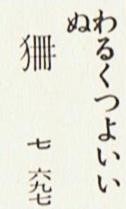 わるくつよいい
ぬ
狦 七 六九七